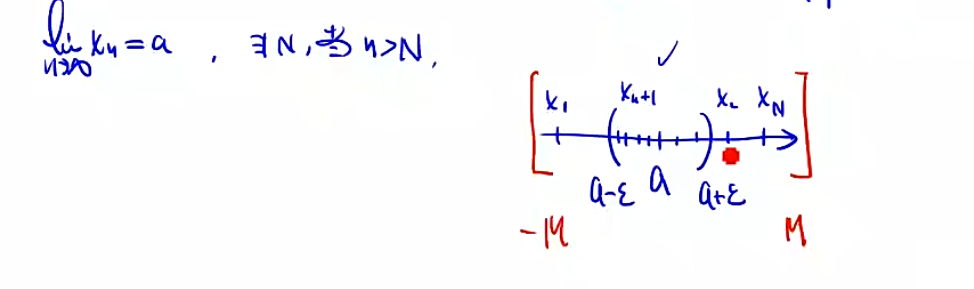 lim xₙ = a , ∃N, 当 n>N,
n→∞
✓
x₁ xₙ₊₁ x₂ x_N
a-ε a a+ε
-M M